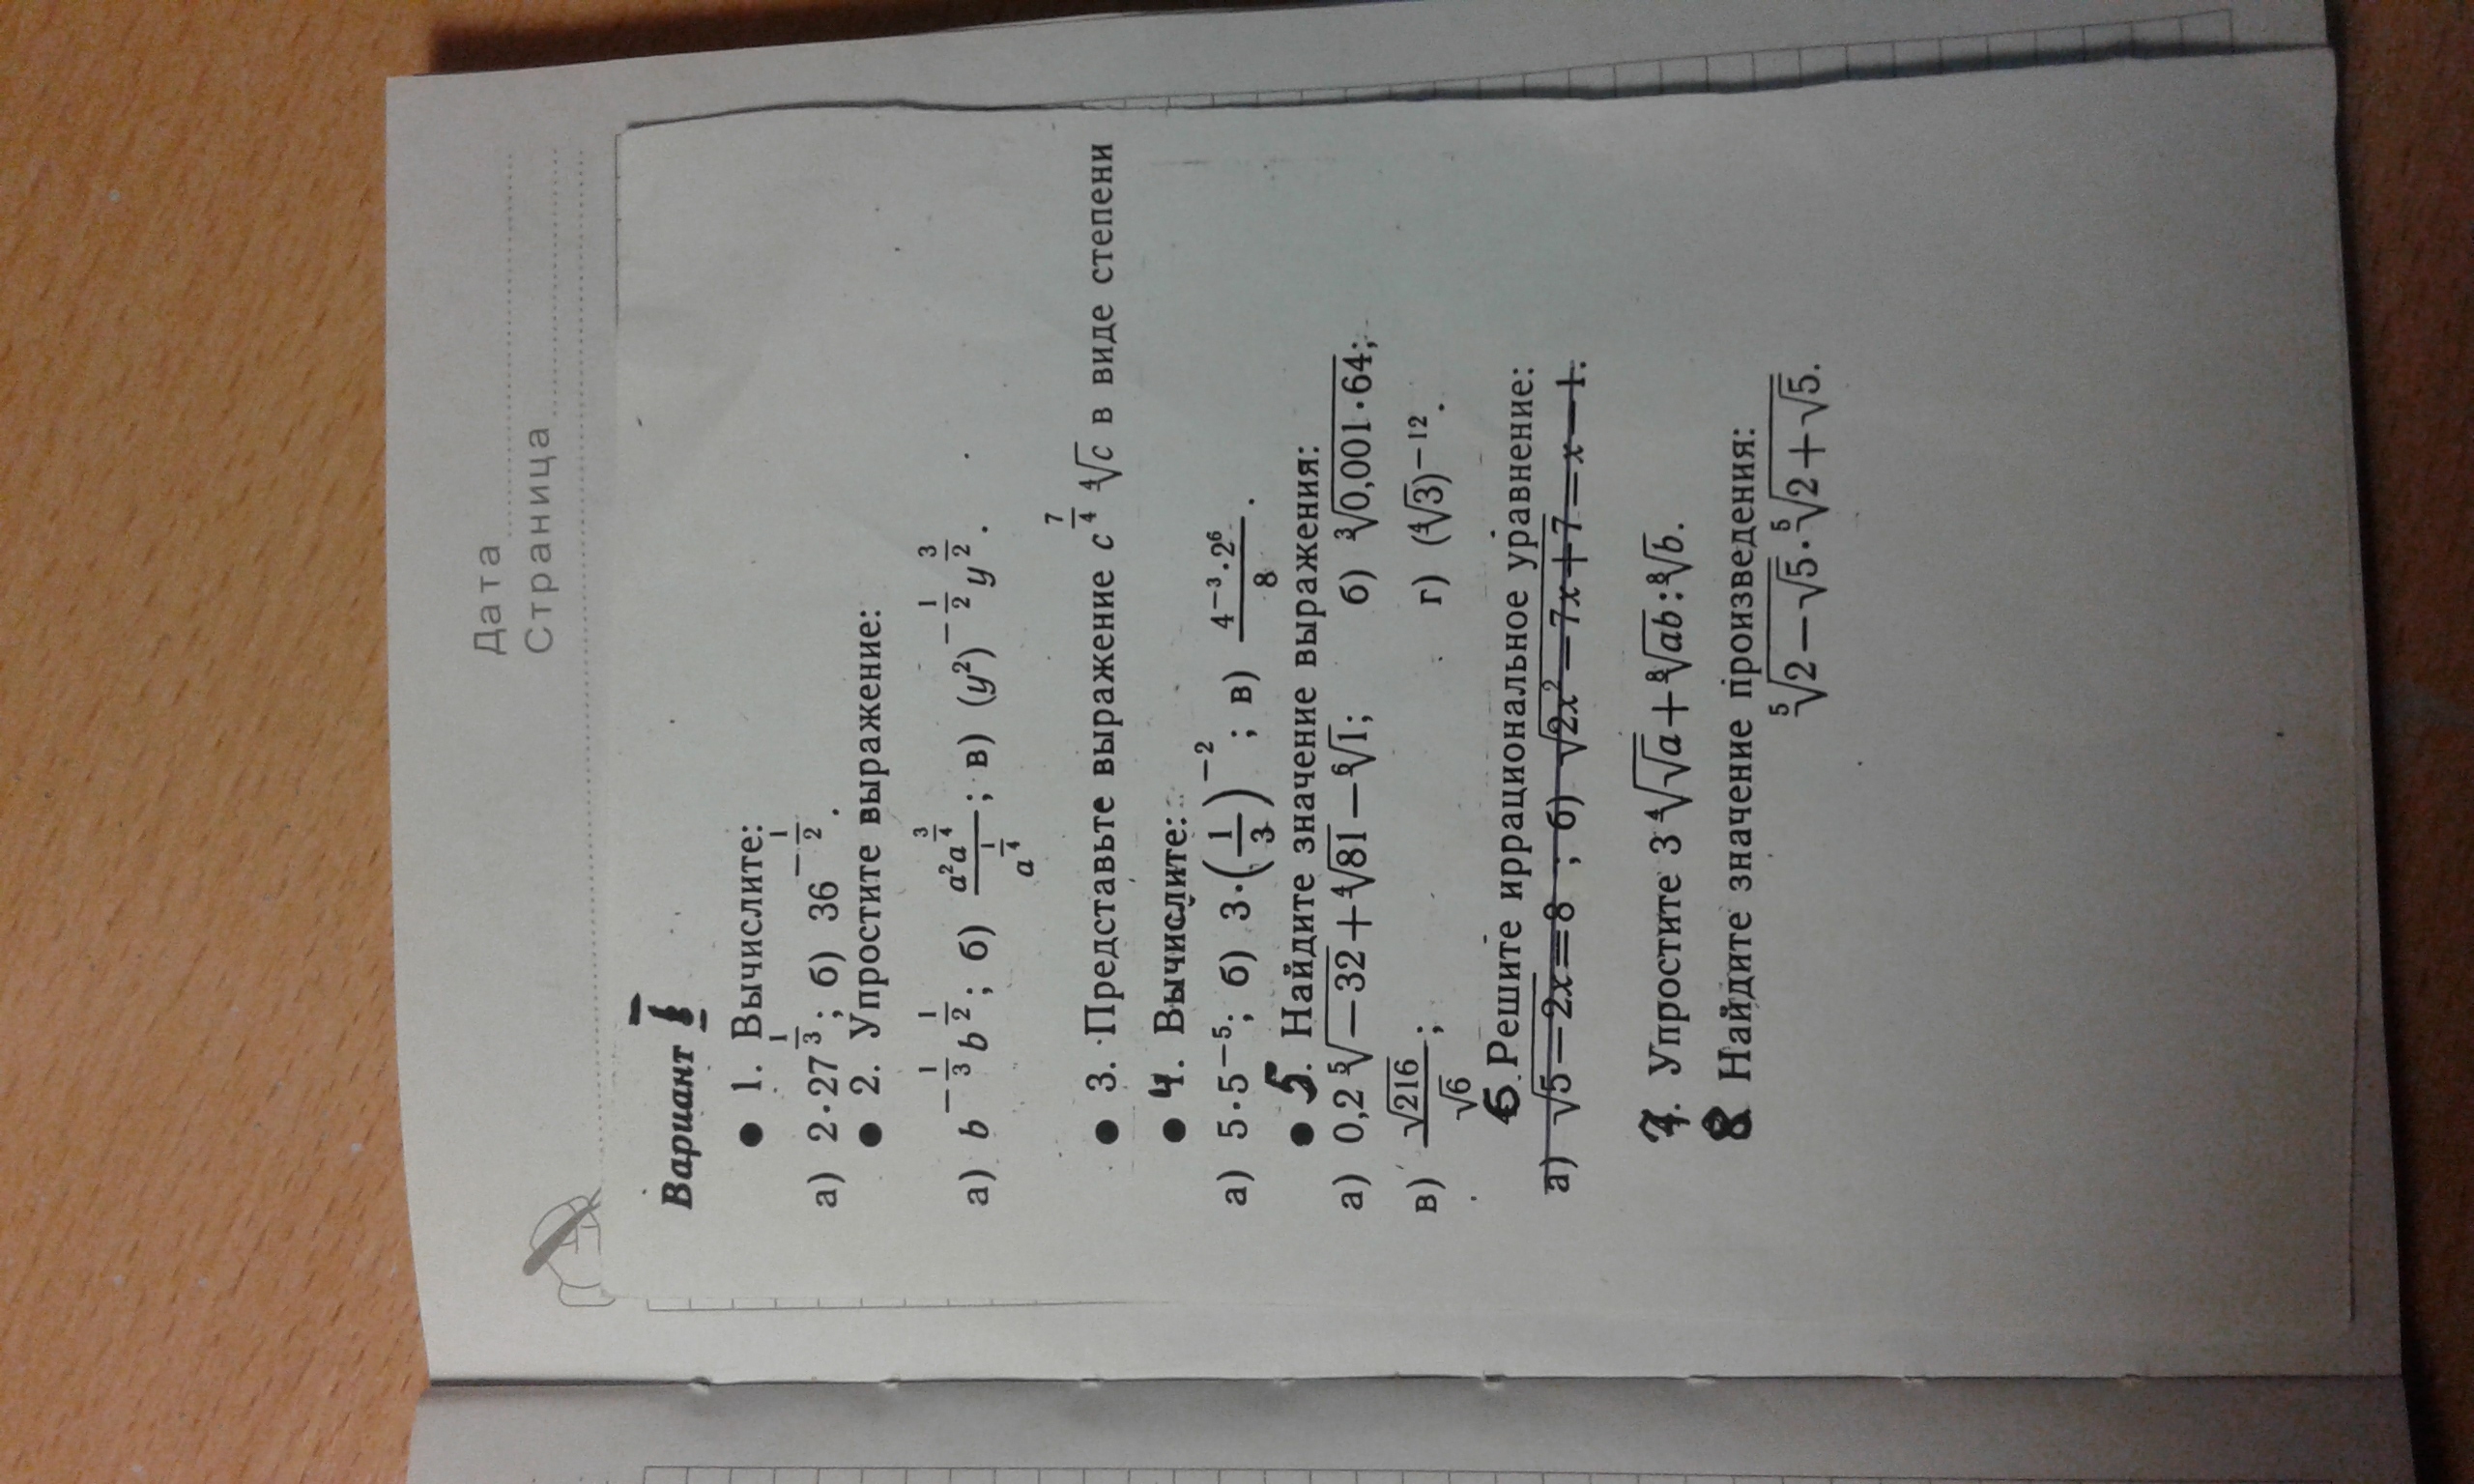 Дата
Страница
Вариант 1
● 1. Вычислите:
а) 2·27^(1/3); б) 36^(−1/2).
● 2. Упростите выражение:
а) b^(−1/3) b^(1/2); б) (a² a^(3/4))/(a^(1/4)); в) (y²)^(−1/2) y^(3/2).
● 3. Представьте выражение c^(7/4) ⁴√c в виде степени
● 4. Вычислите:
а) 5·5⁻⁵; б) 3·(1/3)⁻²; в) (4⁻³·2⁶)/8.
● 5. Найдите значение выражения:
а) 0,2 ⁵√(−32) + ⁴√81 − ⁶√1; б) ³√(0,001·64);
в) √216/√6; г) (⁴√3)⁻¹².
6 Решите иррациональное уравнение:
а) √(5−2x)=8; б) √(2x²−7x+7)=x−1.
7. Упростите 3 ⁴√(√a) + ⁸√(ab) : ⁸√b.
8 Найдите значение произведения:
⁵√(2−√5) · ⁵√(2+√5).